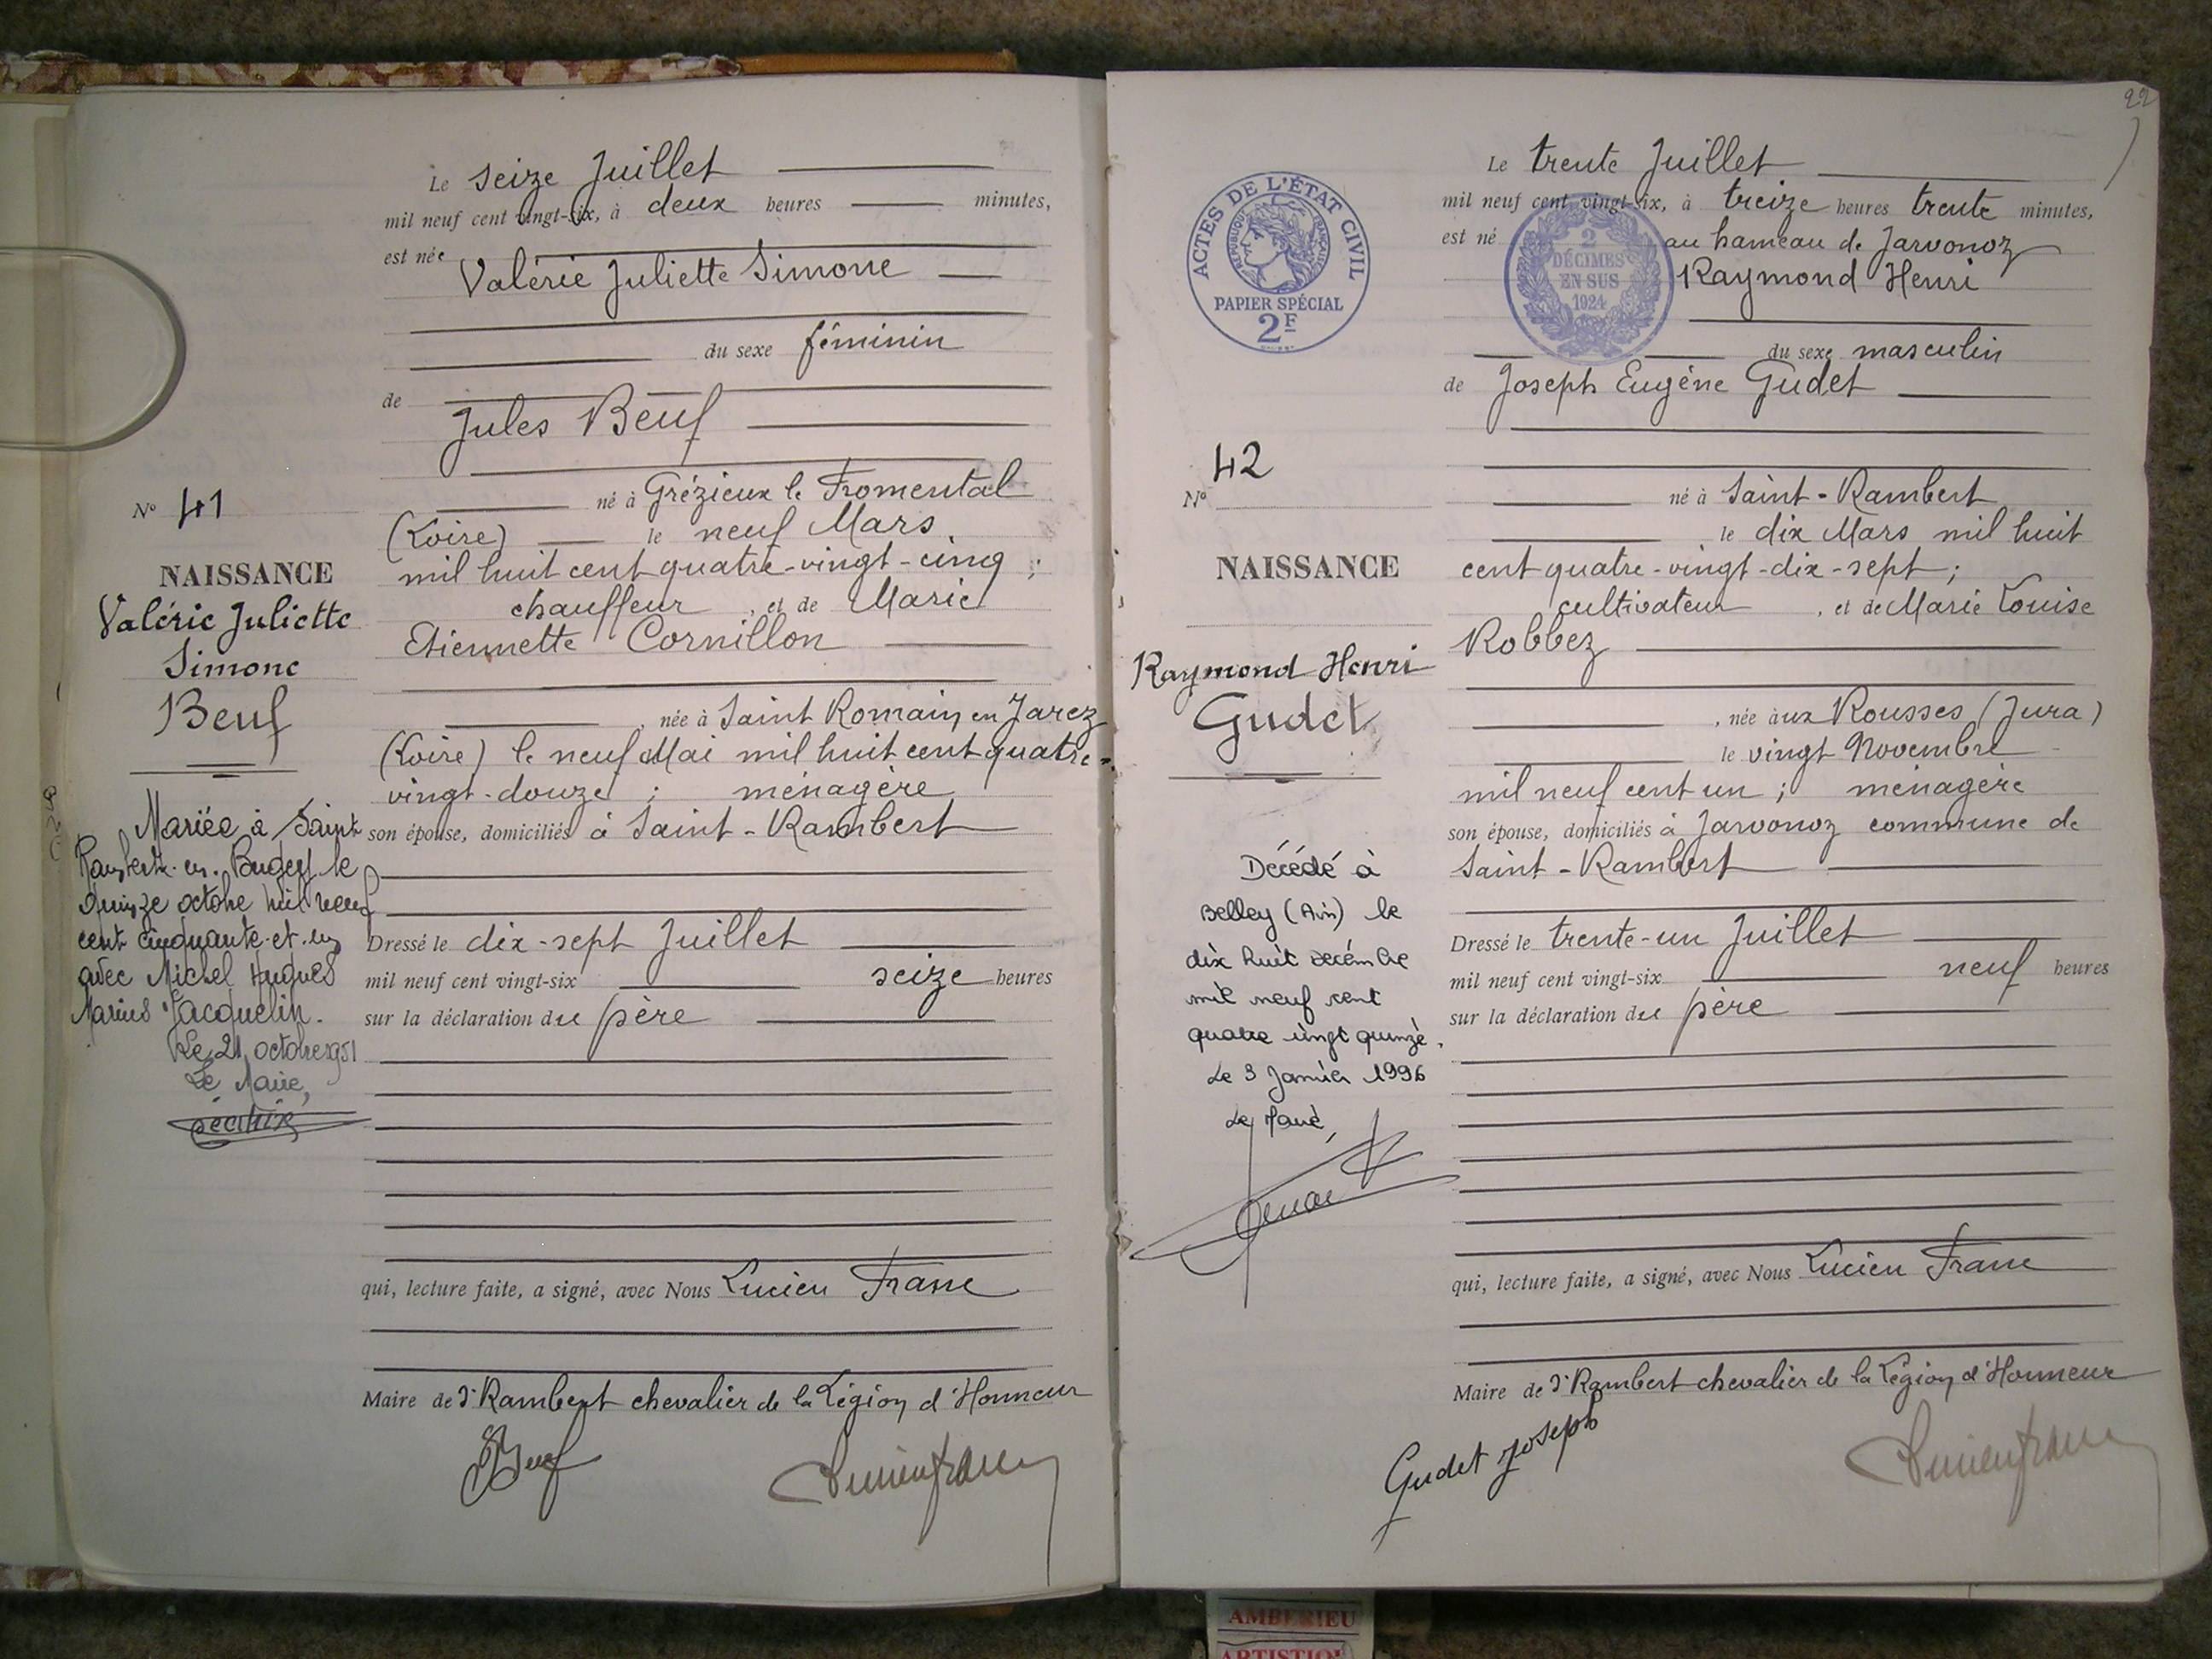 Le seize Juillet
mil neuf cent vingt-six, à deux heures minutes,
est née
Valérie Juliette Simone
du sexe féminin
de
Jules Beuf
né à Grézieux le Fromental
(Loire) le neuf Mars
mil huit cent quatre-vingt-cinq ;
chauffeur , et de Marie
Etiennette Cornillon
, née à Saint Romain en Jarez
(Loire) le neuf Mai mil huit cent quatre-
vingt-douze ; ménagère
son épouse, domiciliés à Saint-Rambert
Dressé le dix-sept Juillet
mil neuf cent vingt-six seize heures
sur la déclaration du père
qui, lecture faite, a signé, avec Nous Lucien Franc
Maire de St Rambert chevalier de la Légion d'Honneur
Beuf
Lucien franc
N° 41
NAISSANCE
Valérie Juliette
Simone
Beuf
Mariée à Saint
Rambert-en-Bugey le
quinze octobre mil neuf
cent cinquante-et-un
avec Michel Hugues
Marius Jacquelin.
Le 21 octobre 1951
Le Maire,
22
ACTES DE L'ÉTAT CIVIL
RÉPUBLIQUE FRANÇAISE
PAPIER SPÉCIAL
2F
2
DÉCIMES
EN SUS
1924
Le trente Juillet
mil neuf cent vingt-six, à treize heures trente minutes,
est né au hameau de Jarvonoz
Raymond Henri
du sexe masculin
de Joseph Eugène Gudet
né à Saint-Rambert
le dix Mars mil huit
cent quatre-vingt-dix-sept ;
cultivateur , et de Marie Louise
Robbez
, née aux Rousses (Jura)
le vingt Novembre
mil neuf cent un ; ménagère
son épouse, domiciliés à Jarvonoz commune de
Saint-Rambert
Dressé le trente-un Juillet
mil neuf cent vingt-six neuf heures
sur la déclaration du père
qui, lecture faite, a signé, avec Nous Lucien Franc
Maire de St Rambert chevalier de la Légion d'Honneur
Gudet Joseph
Lucien franc
N° 42
NAISSANCE
Raymond Henri
Gudet
Décédé à
Belley (Ain) le
dix huit décembre
mil neuf cent
quatre vingt quinze.
Le 3 Janvier 1996
Le Maire,
AMBERIEU